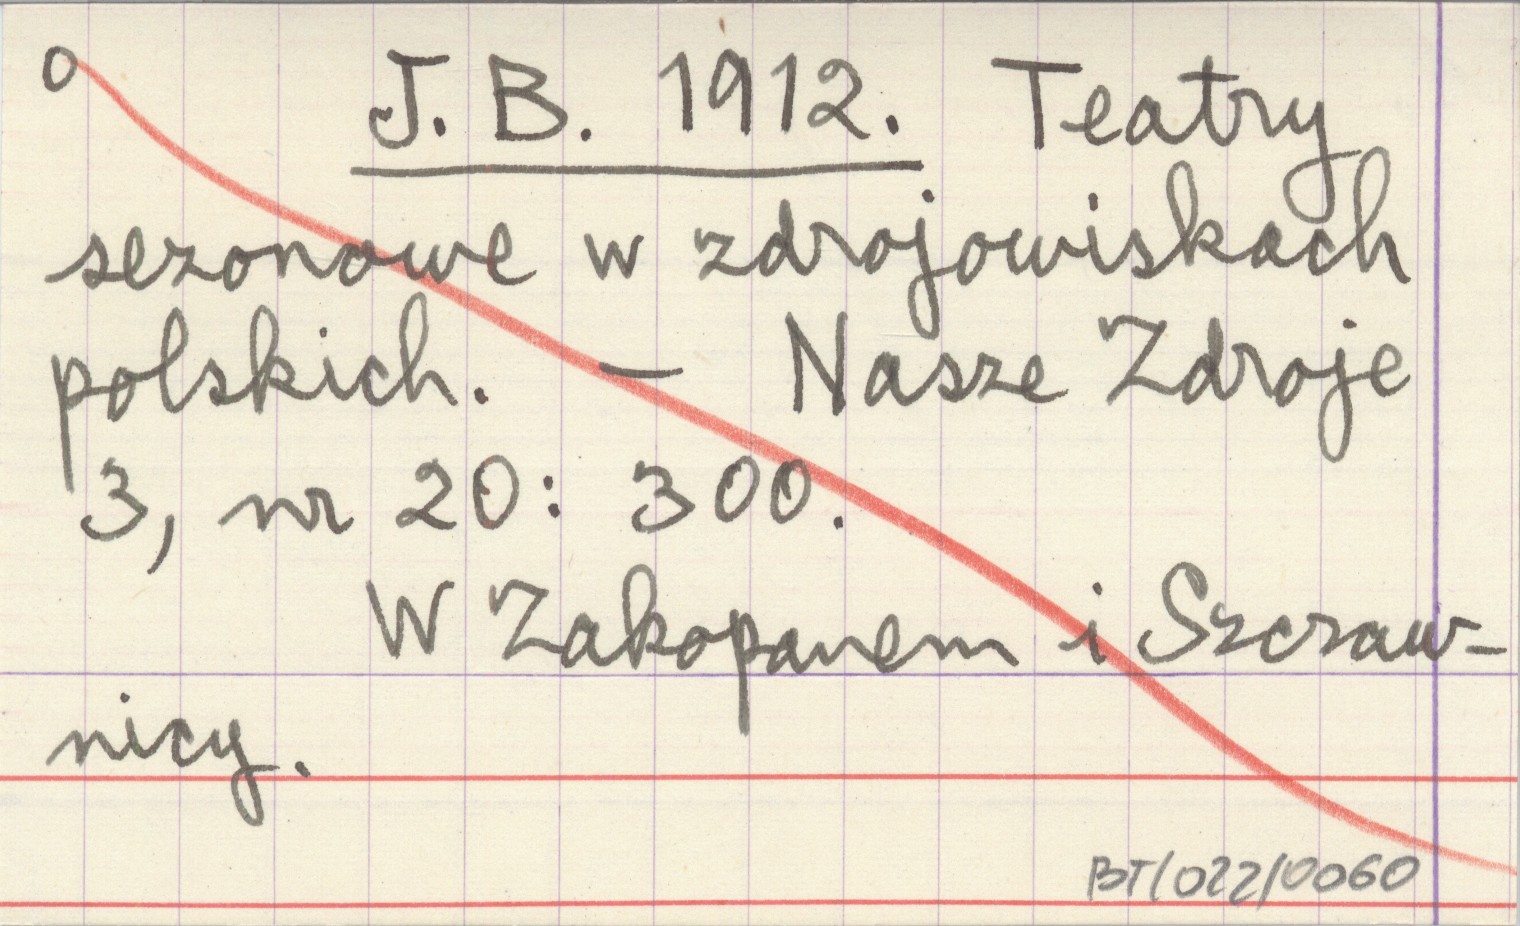 o J. B. 1912. Teatry
sezonowe w zdrojowiskach
polskich. – Nasze Zdroje
3, nr 20: 300.
W Zakopanem i Szczaw-
nicy.
BT/022/0060